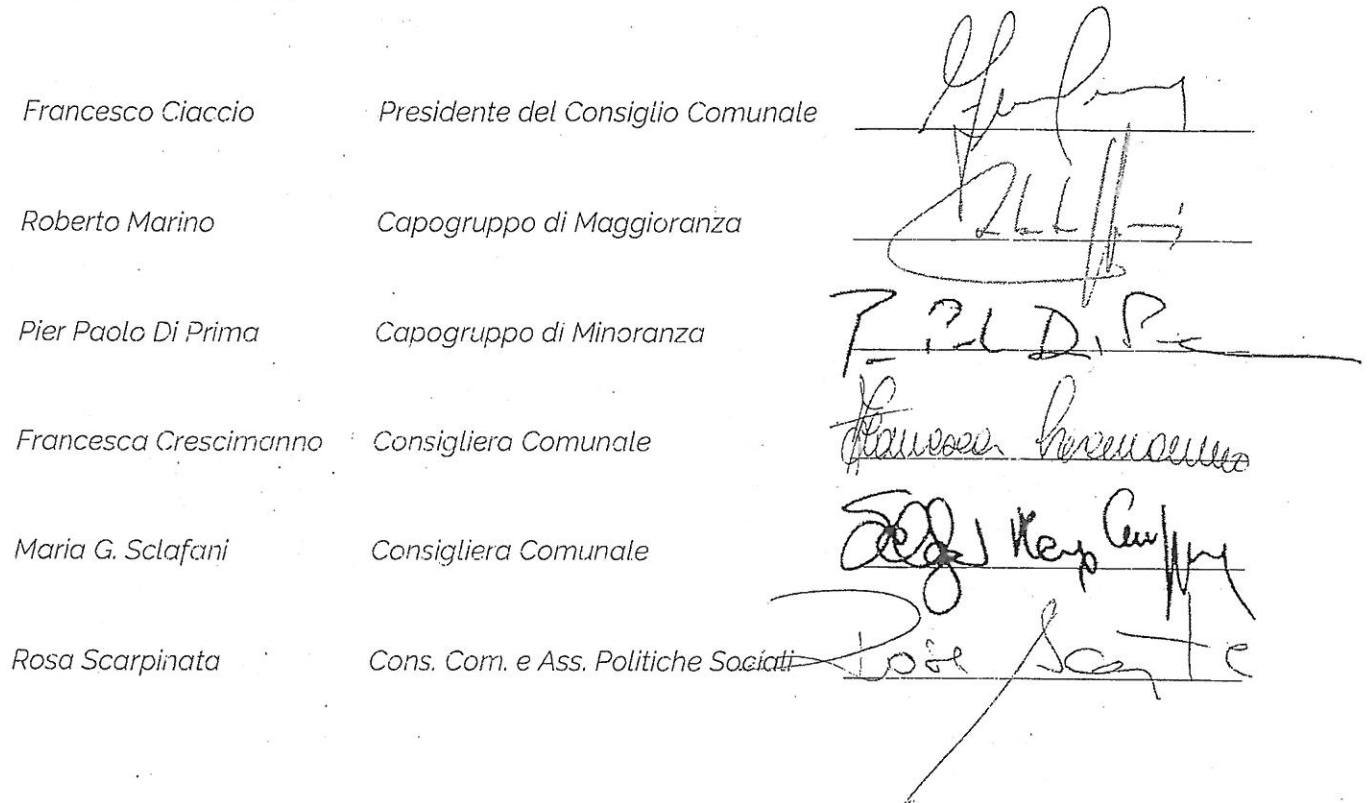 Francesco Ciaccio Presidente del Consiglio Comunale
Roberto Marino Capogruppo di Maggioranza
Pier Paolo Di Prima Capogruppo di Minoranza
Francesca Crescimanno Consigliera Comunale Francesca Crescimanno
Maria G. Sclafani Consigliera Comunale
Rosa Scarpinata Cons. Com. e Ass. Politiche Sociali